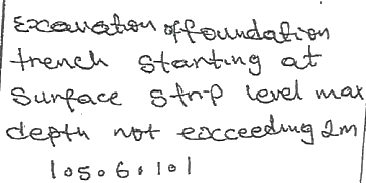 Excavation of foundation
trench starting at
Surface strip level max
depth not exceeding 2m
1.5.6.1.1